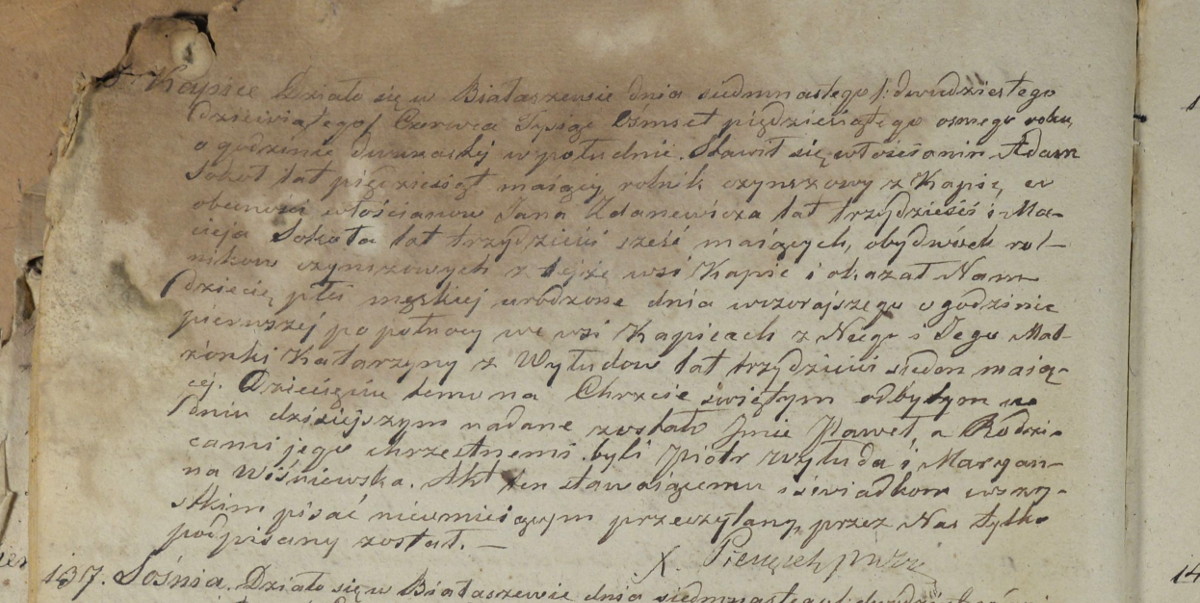 Kapice Działo się w Białaszewie dnia siedmnastego /: dwudziestego
dziewiątego/ Czerwca Tysiąc Ośmset pięćdziesiątego osmego roku,
o godzinie dwunastej w południe. Stawił się włościanin Adam
Sokoł lat pięćdziesiąt maiący, rolnik czynszowy z Kapic, w
obecności włościanow Jana Zdanewicza lat trzydzieści i Ma-
cieja Sokoła lat trzydzieści sześć maiących, obydwóch rol-
nikow czynszowych z tejże wsi Kapic i okazał Nam
dziecię płci męskiej urodzone dnia wczorajszego o godzinie
pierwszej po połnocy we wsi Kapicach z Niego i Jego Mał-
żonki Katarzyny z Wyłudow lat trzydzieści siedm maią-
cej. Dziecięciu temu na Chrzcie świętym odbytym w
dniu dzisiejszym nadane zostało Jmie Paweł, a Rodzi-
cami jego chrzestnemi byli Piotr Wyłuda i Maryan-
na Wiśniewska. Akt ten stawaiącemu i świadkom wszy-
stkim pisać nieumieiącym przeczytany, przez Nas tylko
podpisany został. —
X.
137. Sośnia. Działo się w Białaszewie dnia siedmnastego